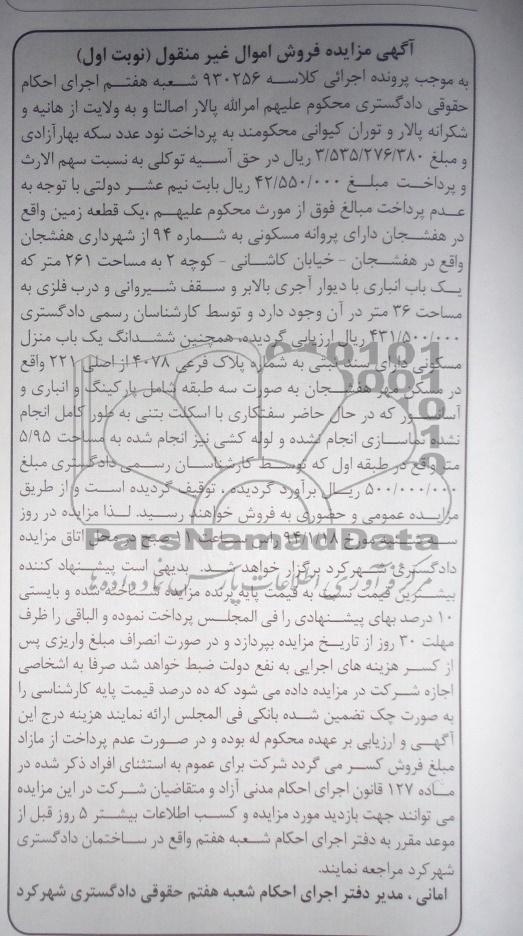 آگهی مزایده فروش اموال غیر منقول (نوبت اول)
به موجب پرونده اجرائی کلاسه ۹۳۰۲۵۶ شعبه هفتم اجرای احکام
حقوقی دادگستری محکوم علیهم امرالله پالار اصالتا و به ولایت از هانیه و
شکرانه پالار و توران کیوانی محکومند به پرداخت نود عدد سکه بهارآزادی
و مبلغ ۳/۵۳۵/۲۷۶/۳۸۰ ریال در حق آسیه توکلی به نسبت سهم الارث
و پرداخت مبلغ ۴۲/۵۵۰/۰۰۰ ریال بابت نیم عشر دولتی با توجه به
عدم پرداخت مبالغ فوق از مورث محکوم علیهم ،یک قطعه زمین واقع
در هفشجان دارای پروانه مسکونی به شماره ۹۴ از شهرداری هفشجان
واقع در هفشجان - خیابان کاشانی - کوچه ۲ به مساحت ۲۶۱ متر که
یک باب انباری با دیوار آجری بالابر و سقف شیروانی و درب فلزی به
مساحت ۳۶ متر در آن وجود دارد و توسط کارشناسان رسمی دادگستری
۴۳۱/۵۰۰/۰۰۰ ریال ارزیابی گردیده، همچنین ششدانگ یک باب منزل
مسکونی دارای سند ثبتی به شماره پلاک فرعی ۴۰۷۸ از اصلی ۲۲۱ واقع
در مسکن مهر هفشجان به صورت سه طبقه شامل پارکینگ و انباری و
آسانسور که در حال حاضر سفتکاری با اسکلت بتنی به طور کامل انجام
نشده نماسازی انجام نشده و لوله کشی نیز انجام شده به مساحت ۵/۹۵
متر واقع در طبقه اول که توسط کارشناسان رسمی دادگستری مبلغ
۵۰۰/۰۰۰/۰۰۰ ریال برآورد گردیده ، توقیف گردیده است و از طریق
مزایده عمومی و حضوری به فروش خواهند رسید. لذا مزایده در روز
سه شنبه مورخ ۹۴/۱/۱۸ راس ساعت ۱۱ صبح در محل اتاق مزایده
دادگستری شهرکرد برگزار خواهد شد. بدیهی است پیشنهاد کننده
بیشترین قیمت نسبت به قیمت پایه برنده مزایده شناخته شده و بایستی
۱۰ درصد بهای پیشنهادی را فی المجلس پرداخت نموده و الباقی را ظرف
مهلت ۳۰ روز از تاریخ مزایده بپردازد و در صورت انصراف مبلغ واریزی پس
از کسر هزینه های اجرایی به نفع دولت ضبط خواهد شد صرفا به اشخاصی
اجازه شرکت در مزایده داده می شود که ده درصد قیمت پایه کارشناسی را
به صورت چک تضمین شده بانکی فی المجلس ارائه نمایند هزینه درج این
آگهی و ارزیابی بر عهده محکوم له بوده و در صورت عدم پرداخت از مازاد
مبلغ فروش کسر می گردد شرکت برای عموم به استثنای افراد ذکر شده در
ماده ۱۲۷ قانون اجرای احکام مدنی آزاد و متقاضیان شرکت در این مزایده
می توانند جهت بازدید مورد مزایده و کسب اطلاعات بیشتر ۵ روز قبل از
موعد مقرر به دفتر اجرای احکام شعبه هفتم واقع در ساختمان دادگستری
شهرکرد مراجعه نمایند.
امانی ، مدیر دفتر اجرای احکام شعبه هفتم حقوقی دادگستری شهرکرد
ParsNamadData
مرکز فرآوری اطلاعات پارس نماد داده ها